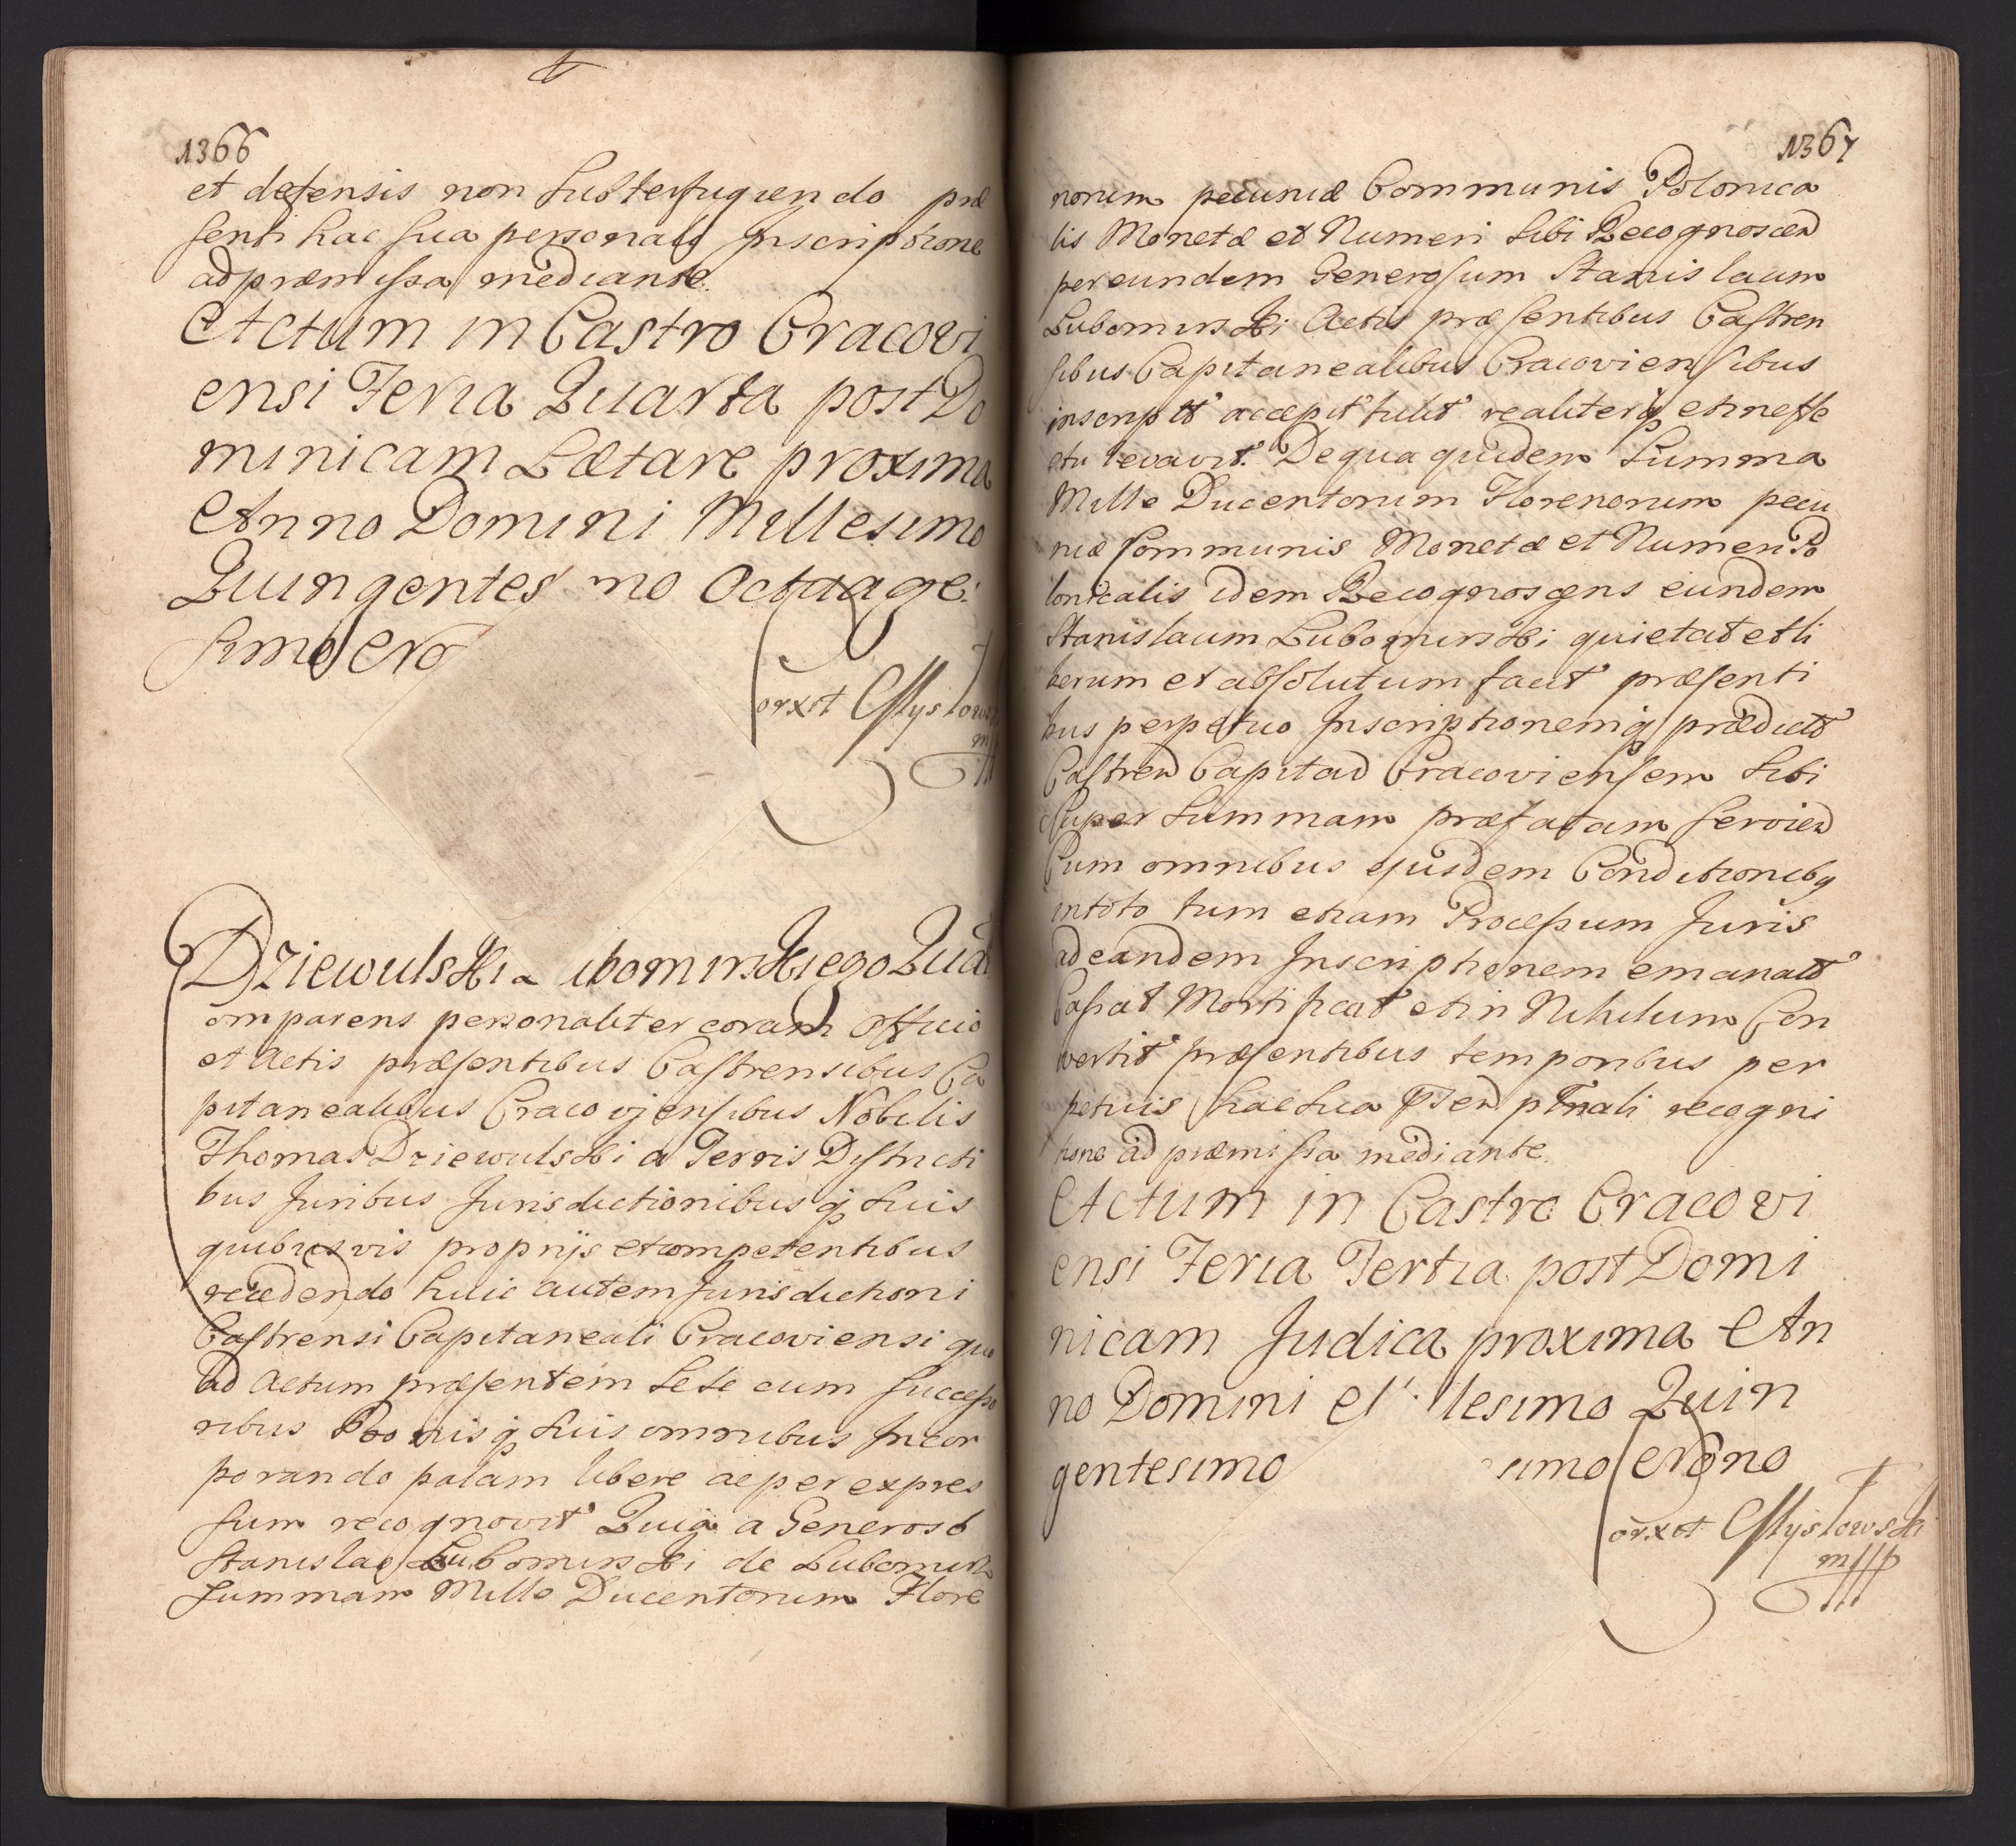 1366
et defensis non subterfugiendo præ
senti hac sua personali Inscriptione
ad præmissa mediante.
Actum in Castro Cracovi
ensi Feria Quarta post Do
minicam Lætare proxima
Anno Domini Millesimo
Quingentes mo Octuage
simo
corxt Mysłows
mp
Dziewulski ubomirskiego Qua
omparens personaliter coram Officio
et Actis præsentibus Castrensibus Ca
pitanealibus Cracovjensibus Nobilis
Thomas Dziewulski a Terris Districti
bus Juribus Jurisdictionibusq suis
quibusvis proprijs et competentibus
recedendo huic autem Jurisdictioni
Castrensi Capitaneali Cracoviensi quo
ad Actum præsentem sese cum successo
ribus Bonisq suis omnibus Incor
porando palam libere ac per expres
sum recognovit Quia a Generoso
Stanislao Lubomirski de Lubomirz
summam Mille Ducentorum Flore
1367
norum pecuniæ Communis Polonica
lis Monetæ et Numeri sibi Recognoscen
per eundem Generosum Stanislaum
Lubomirski Actis præsentibus Castren
sibus Capitanealibus Cracoviensibus
inscript accepit tulit realiterq et in esse
etu levavit. De qua quidem summa
Mille Ducentorum Florenorum pecu
niæ Communis Monetæ et Numeri Po
lonicalis idem Recognoscens eundem
Stanislaum Lubomirski quietat et li
berum et absolutum facit præsenti
bus perpetuo Inscriptionemq prædict
Castren Capitan Cracoviensem sibi
super summam præfatam servien
Cum omnibus ejusdem Conditionibq
in toto tum etiam Processum Juris
ad eandem Inscriptionem emanat
Cassat Mortificat et in Nihilum Con
vertit præsentibus temporibus per
petuis hac sua recogni
tione ad præmissa mediante.
Actum in Castro Cracovi
ensi Feria Tertia post Domi
nicam Judica proxima An
no Domini lesimo Quin
gentesimo simo Nono
corxt Mysłowski
mp